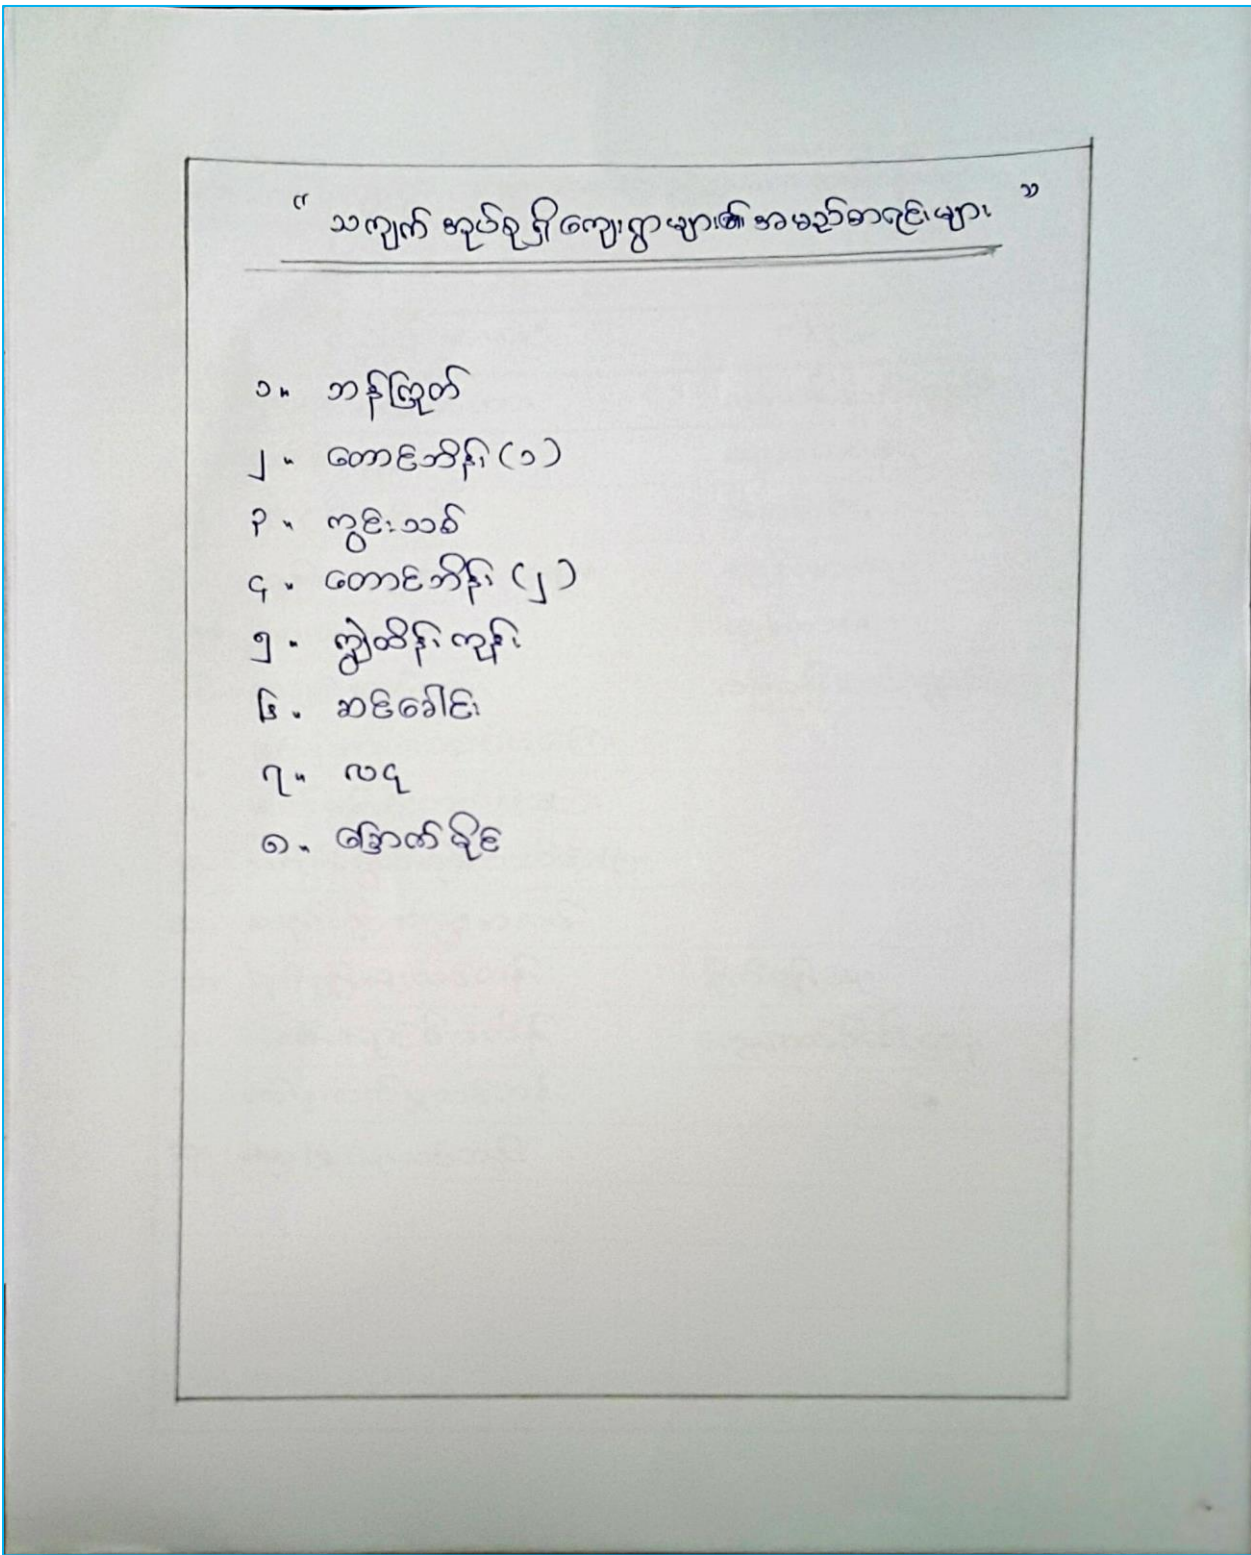 “ သကျက် အုပ်စု ရှိ ကျေးရွာများ၏ အမည်စာရင်းများ ”
၁။ ဘန်ကြုတ်
၂။ တောင်ဘိန်း (၁)
၃။ ကွင်းသစ်
၄။ တောင်ဘိန်း (၂)
၅။ ကျွဲထိန်းကုန်း
၆။ ဆင်ခေါင်း
၇။ လငု
၈။ ခြောက်မိုင်